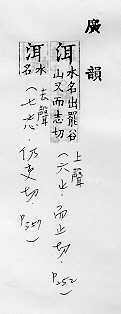 廣韻
洱 水名出罷谷
山又而志切
上聲
(六止.而止切.P252)
洱 水
名
去聲
(七志.仍吏切.